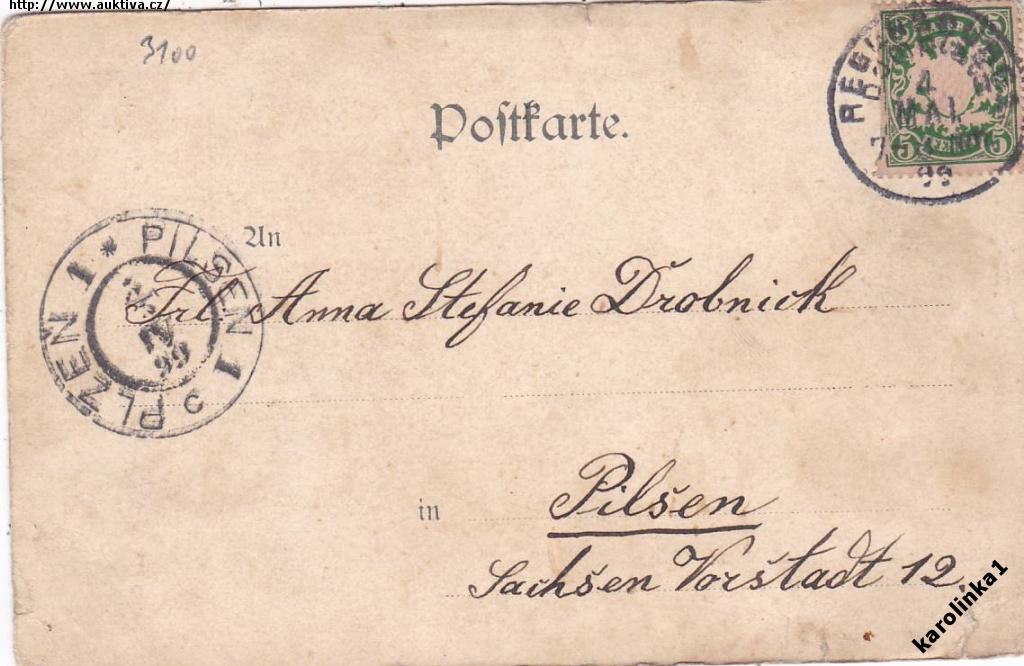 http://www.auktiva.cz/
3100
Postkarte.
5 5
4
MAI.
7
5 5
99
PILSEN 1
PLZEN 1
C
99
An
Frl. Anna Stefanie Drobnick
in
Pilšen
Sachšen Vorštadt 12.
karolinka1